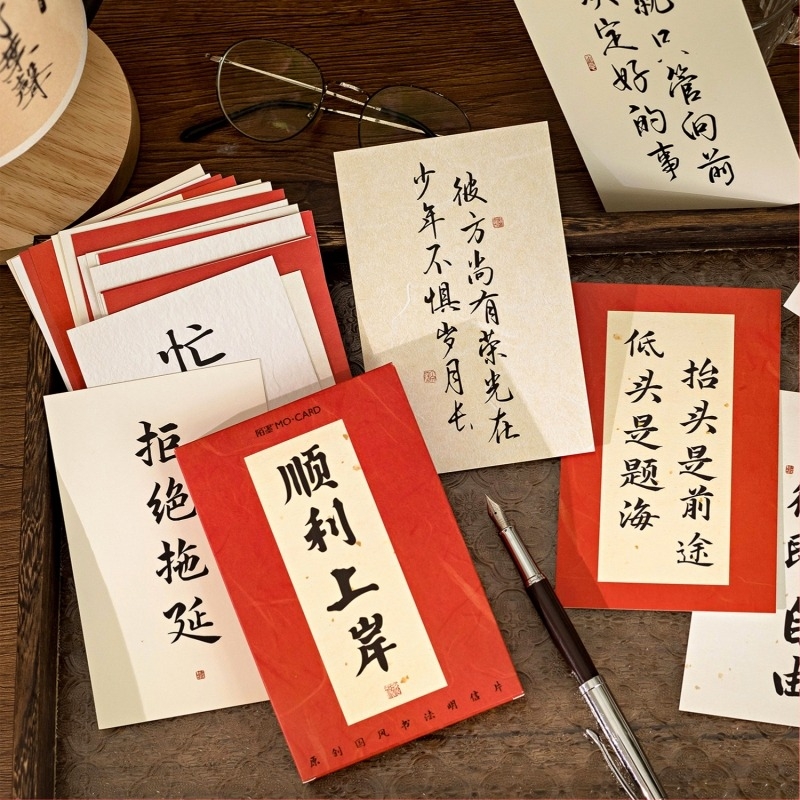 决定好的事
就只管向前
少年不惧岁月长
彼方尚有荣光在
忙
拒绝拖延
MO·CARD
顺利上岸
原创国风书法明信片
低头是题海
抬头是前途
自由